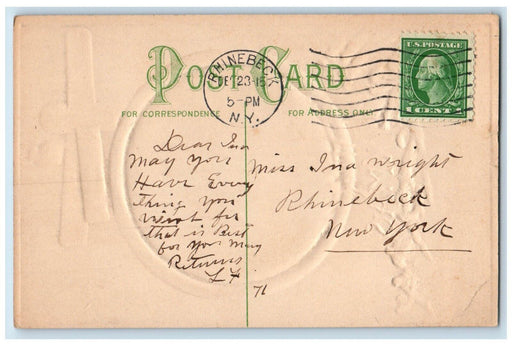 POST CARD
RHINEBECK
5-PM
N.Y.
U.S. POSTAGE
1 CENT 1
FOR CORRESPONDENCE
FOR ADDRESS ONLY
Dear Ina
May You
Have Every
thing you
for
that is Best
for your Many
Returns
Miss Ina Wright
Rhinebeck
New York